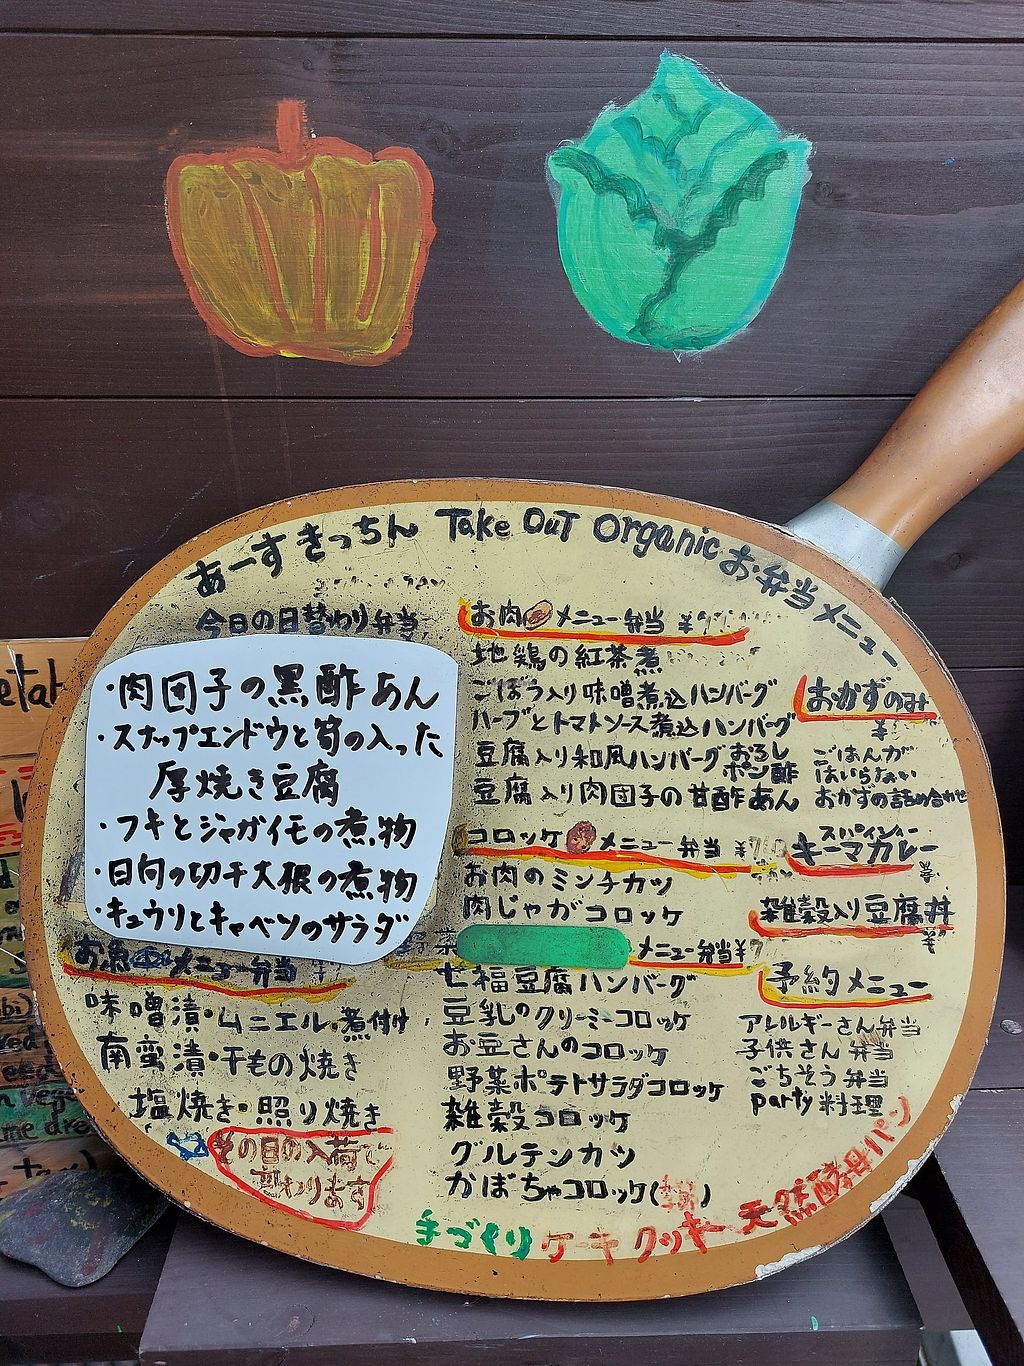 あーすきっちん Take Out Organic お弁当メニュー
今日の日替わり弁当
・肉団子の黒酢あん
・スナップエンドウと筍の入った
厚焼き豆腐
・フキとジャガイモの煮物
・日向の切干大根の煮物
・キュウリとキャベツのサラダ
お魚メニュー弁当
味噌漬・ムニエル・煮付け
南蛮漬・干もの焼き
塩焼き・照り焼き
その日の入荷で
変わります
お肉メニュー弁当 ¥
地鶏の紅茶煮
ごぼう入り味噌煮込ハンバーグ
ハーブとトマトソース煮込ハンバーグ
豆腐入り和風ハンバーグおろしポン酢
豆腐入り肉団子の甘酢あん
コロッケメニュー弁当 ¥
お肉のミンチカツ
肉じゃがコロッケ
野菜 メニュー弁当¥7
七福豆腐ハンバーグ
豆乳のクリーミーコロッケ
お豆さんのコロッケ
野菜ポテトサラダコロッケ
雑穀コロッケ
グルテンカツ
かぼちゃコロッケ
おかずのみ
¥
ごはんが
はいらない
おかずの詰め合わせ
スパイシー
キーマカレー
雑穀入り豆腐丼
¥
予約メニュー
アレルギーさん弁当
子供さん弁当
ごちそう弁当
party料理
手づくり ケーキ クッキー 天然酵母パン